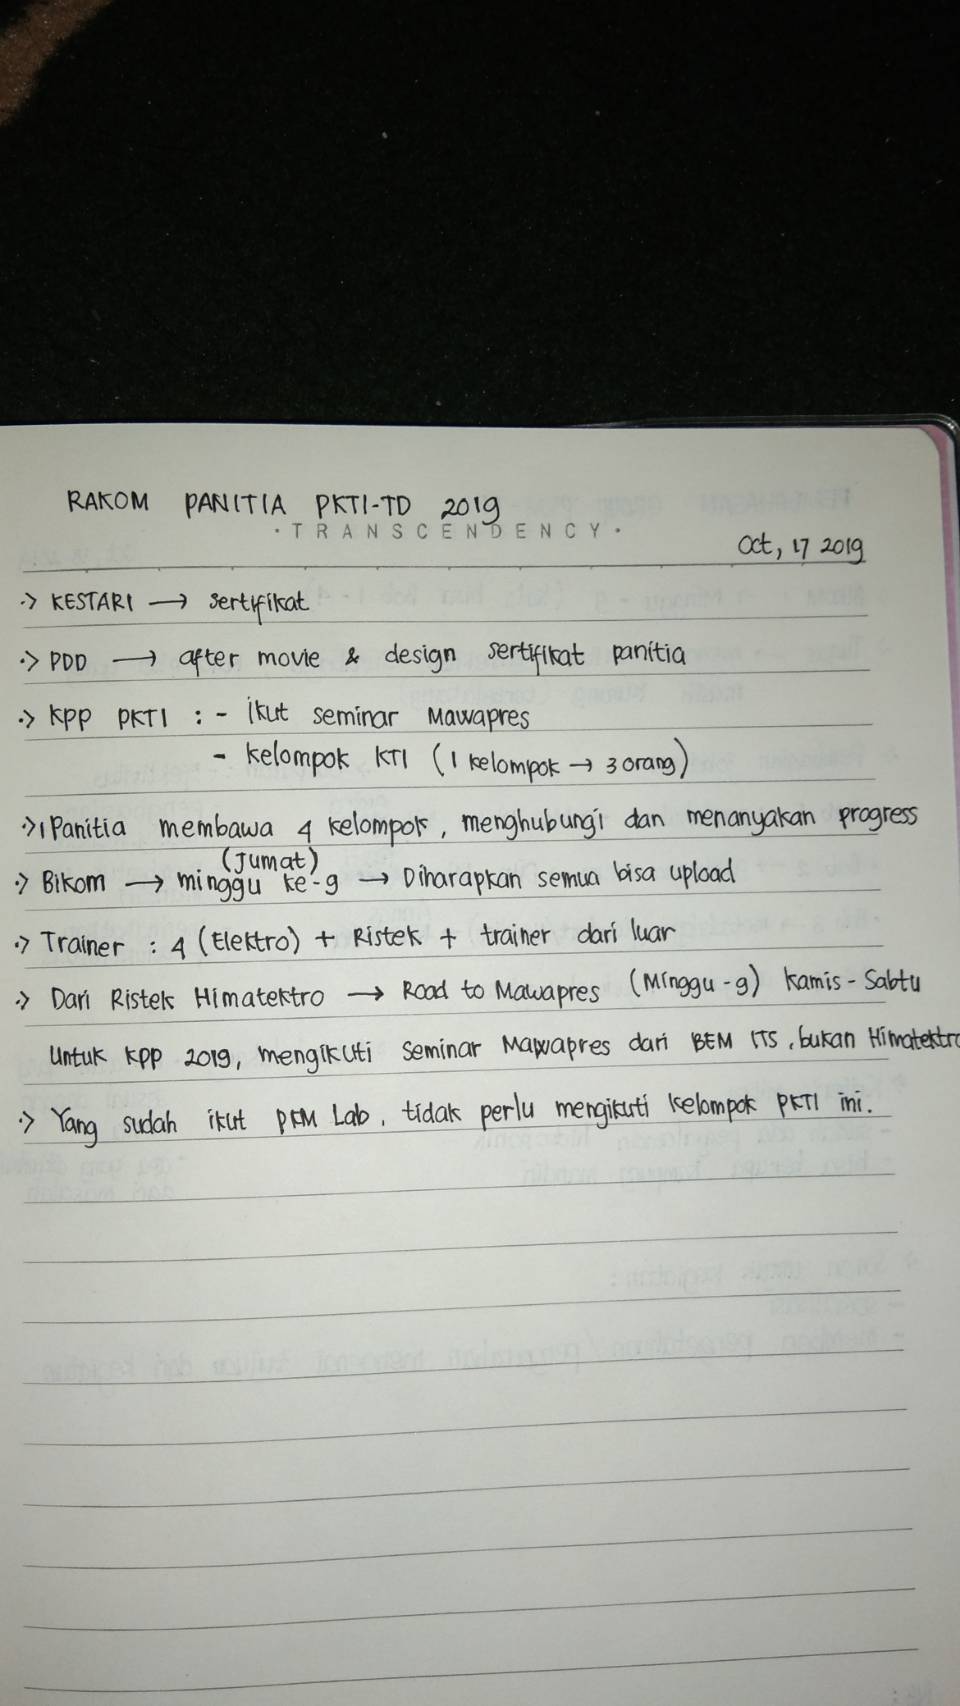 RAKOM PANITIA PKTI-TD 2019
· TRANSCENDENCY ·
Oct, 17 2019
·> KESTARI → sertifikat
·> PDD → after movie & design sertifikat panitia
·> KPP PKTI : - ikut seminar Mawapres
- kelompok KTI (1 kelompok → 3 orang)
·> 1 Panitia membawa 4 kelompok, menghubungi dan menanyakan progress
(Jumat)
·> Bikom → minggu ke-9 → Diharapkan semua bisa upload
·> Trainer : 4 (Elektro) + Ristek + trainer dari luar
·> Dari Ristek Himatektro → Road to Mawapres (Minggu-9) Kamis - Sabtu
Untuk KPP 2019, mengikuti seminar Mawapres dari BEM ITS, bukan Himatektro
·> Yang sudah ikut PKM Lab, tidak perlu mengikuti kelompok PKTI ini.